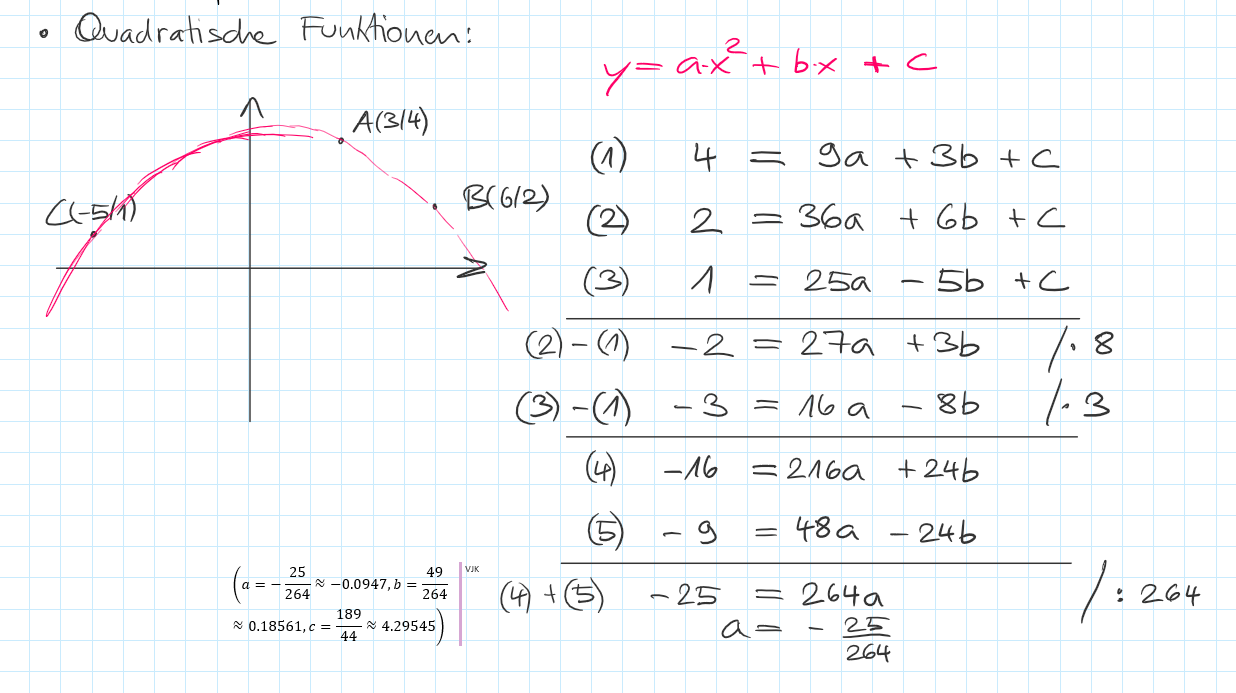 • Quadratische Funktionen:
y = a·x² + b·x + c
A(3/4)
B(6/2)
C(-5/1)
(1) 4 = 9a + 3b + c
(2) 2 = 36a + 6b + c
(3) 1 = 25a - 5b + c
(2)-(1) -2 = 27a + 3b /· 8
(3)-(1) -3 = 16a - 8b /· 3
(4) -16 = 216a + 24b
(5) -9 = 48a - 24b
(4)+(5) -25 = 264a /: 264
a = - 25/264
(a = − 25/264 ≈ −0.0947, b = 49/264
≈ 0.18561, c = 189/44 ≈ 4.29545)
VJK